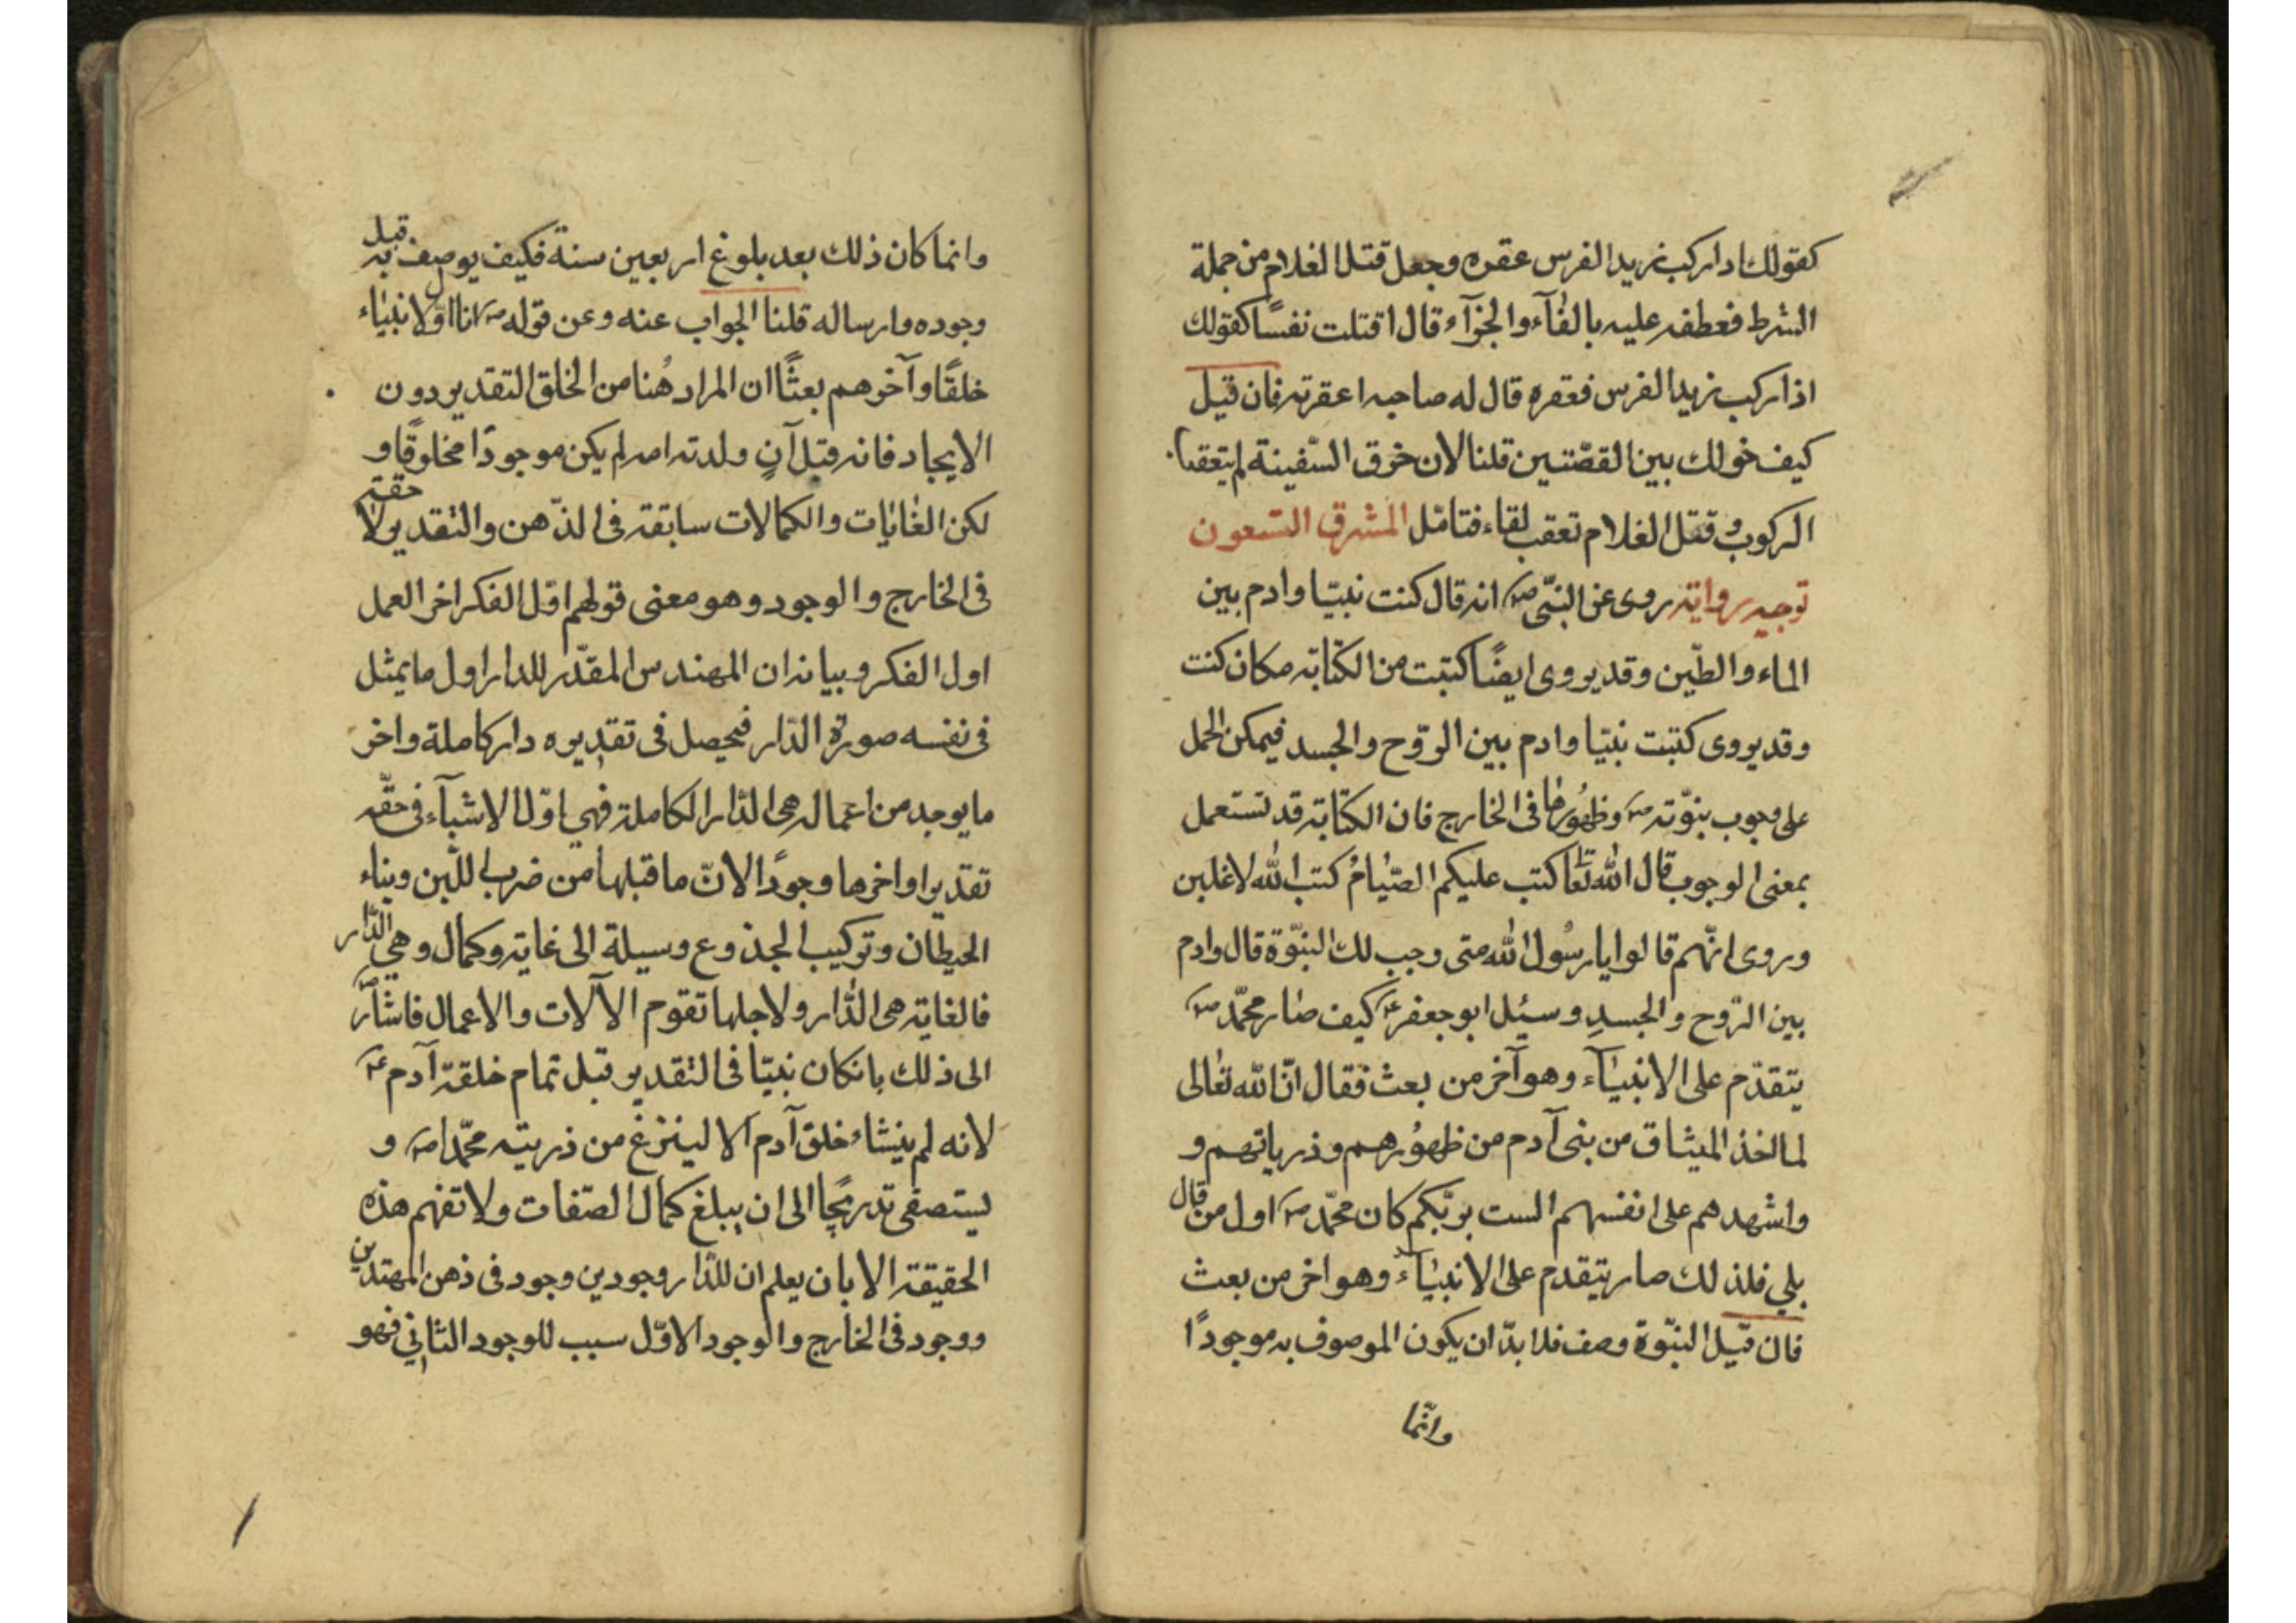 كقولك اذا ركب زيد الفرس عقره وجعل قتل الغلام من جملة
الشرط فعطفه عليه بالفآء والجزآء قال اقتلت نفسًا كقولك
اذا ركب زيد الفرس فعقره قال له صاحبه اعقرته فان قيل
كيف خولك بين القصّتين قلنا لان خرق السّفينة لم يتعقب
الركوب وقتل الغلام تعقب لقاء فتامّل المشرق التسعون
توجيه رواية روى عن النبّى ص انه قال كنت نبيّا وادم بين
الماء والطّين وقد يروى ايضًا كتبت من الكتابة مكان كنت
وقد يروى كتبت نبيّا وادم بين الرّوح والجسد فيمكن الحمل
على وجوب نبوّته ص وظهُورها فى الخارج فان الكتابة قد تستعمل
بمعنى الوجوب قال الله تعٰا كتب عليكم الصّيٰامُ كتب الله لاغلبن
وروى انّهم قالوا يا رسُول الله متى وجب لك النبّوة قال وادم
بين الرّوح والجسدِ وسئل ابو جعفر ع كيف صٰار محمّد ص
يتقدّم على الانبيٰآء وهو آخر من بعث فقال انّ الله تعٰالى
لما اخذ الميثاق من بنى آدم من ظهُورهم وذرياتهم و
واشهدهم على انفسهم الست بربّكم كان محمّد ص اول من قال
بلى فلذلك صار يتقدم على الانبيٰآء وهو اخر من بعث
فان قيل النبّوة وصف فلا بدّ ان يكون الموصوف به موجودًا
وانّما
وانما كان ذلك بعد بلوغ اربعين سنة فكيف يوصف به قبل
وجوده وارساله قلنا الجواب عنه وعن قوله ص انا اول الانبيٰاء
خلقًا وآخرهم بعثًا ان المراد هُنا من الخلق التقدير دون
الايجاد فانه قبل آنٍ ولدته امه لم يكن موجودًا مخلوقًا و
لكن الغٰايٰات والكمالات سابقة فى الذّهن والتقدير لاحقة
فى الخارج والوجود وهو معنى قولهم اوّل الفكر اخر العمل
اول الفكر وبيانه ان المهندس المقدّر للدار اول ما يمثل
فى نفسه صورة الدّار فيحصل فى تقديره دار كاملة واخر
ما يوجد من اعماله هى الدّار الكاملة فهى اوّل الاشيآء فى حقّه
تقديرا واخرها وجودًا لانّ ما قبلها من ضرب اللّبن وبناء
الحيطان وتركيب الجذوع وسيلة الى غاية وكمال وهى الدّار
فالغاية هى الدّٰار ولاجلها تقوم الآلات والاعمال فاشار ص
الى ذلك بانكان نبيّا فى التقدير قبل تمام خلقة آدم ع
لانه لم ينشاء خلق آدم الا لينزع من ذريته محمّدا ص و
يستصفى تدريجًا الى ان يبلغ كمال الصّفات ولا تفهم هذه
الحقيقة الا بان يعلم ان للدّار وجودين وجود فى ذهن المهتدين
ووجود فى الخارج والوجود الاوّل سبب للوجود الثانى فهو